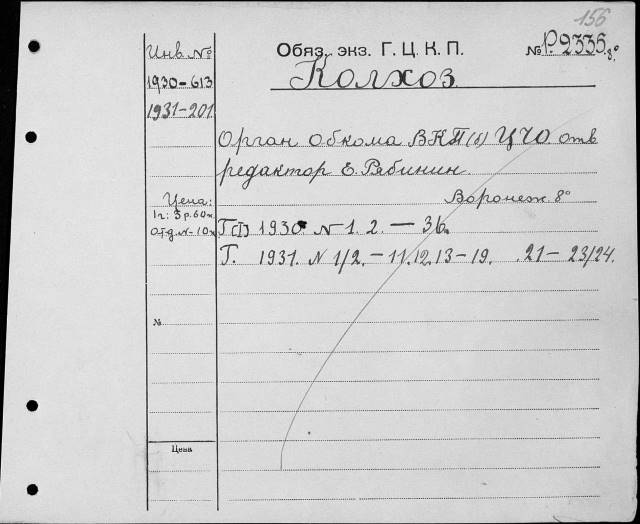 156
Инв. №
1930-613
1931-201
Обяз. экз. Г. Ц. К. П.
№ P. 2335. 8°
Колхоз.
Орган Обкома ВКП(б) ЦЧО. отв
редактор Е. Рябинин.
Воронеж. 8°
Цена:
1 г: 3 р. 60 к
Отд. № - 10 к
Г(I) 1930. № 1. 2. — 36.
Г. 1931. № 1/2. – 11. 12. 13 – 19. 21 – 23/24.
№
Цена